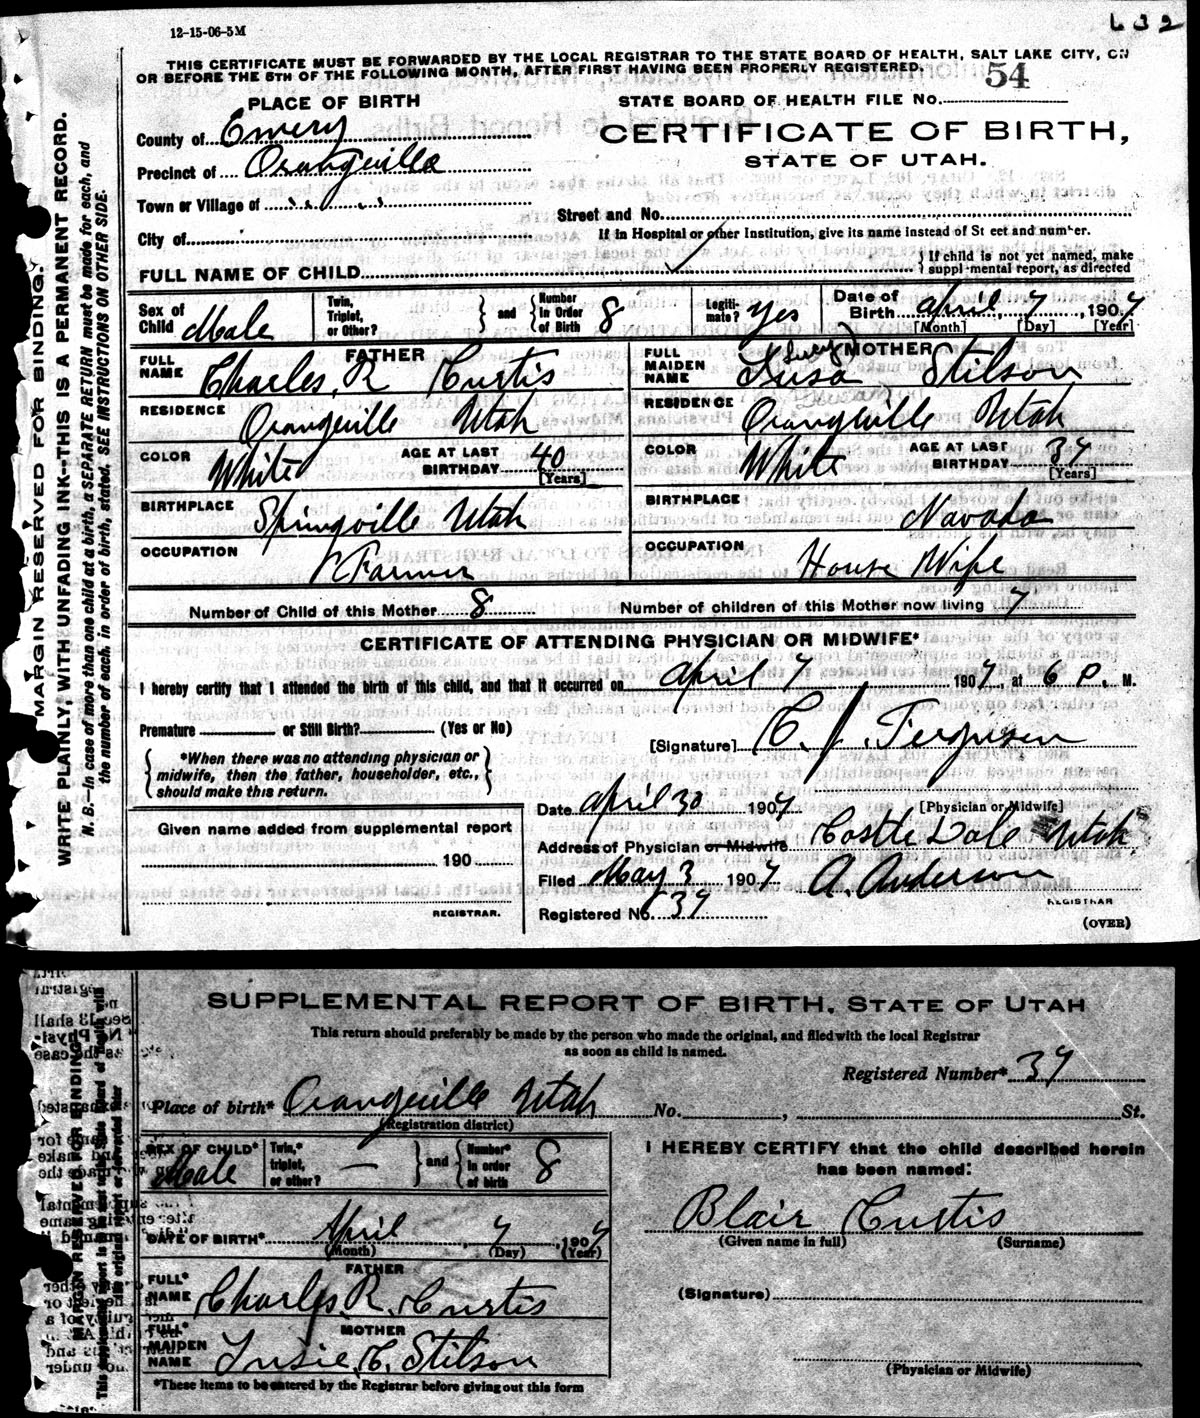 12-15-06-5M
632
THIS CERTIFICATE MUST BE FORWARDED BY THE LOCAL REGISTRAR TO THE STATE BOARD OF HEALTH, SALT LAKE CITY, ON
OR BEFORE THE 5TH OF THE FOLLOWING MONTH, AFTER FIRST HAVING BEEN PROPERLY REGISTERED.
54
PLACE OF BIRTH
STATE BOARD OF HEALTH FILE No.
County of Emery
CERTIFICATE OF BIRTH,
Precinct of Orangeville
STATE OF UTAH.
Town or Village of " "
Street and No.
City of
If in Hospital or other Institution, give its name instead of St eet and number.
FULL NAME OF CHILD
{ If child is not yet named, make
suppl-mental report, as directed
Sex of Child Male
Twin, Triplet, or Other?
} and { Number in Order of Birth 8
Legiti-mate? yes
Date of Birth April 7, 1907
[Month] [Day] [Year]
FATHER
FULL NAME Charles R Curtis
RESIDENCE Orangeville Utah
COLOR White
AGE AT LAST BIRTHDAY 40
[Years]
BIRTHPLACE Springville Utah
OCCUPATION Farmer
MOTHER
FULL MAIDEN NAME Susa Stilson
RESIDENCE Orangeville Utah
COLOR White
AGE AT LAST BIRTHDAY 37
[Years]
BIRTHPLACE Navada
OCCUPATION House Wife
Number of Child of this Mother 8
Number of children of this Mother now living 7
CERTIFICATE OF ATTENDING PHYSICIAN OR MIDWIFE*
I hereby certify that I attended the birth of this child, and that it occurred on April 7, 1907, at 6 P. M.
Premature or Still Birth? (Yes or No)
[Signature] C. J. Ferguson
{ *When there was no attending physician or
midwife, then the father, householder, etc.,
should make this return. }
[Physician or Midwife]
Date April 30 1907
Given name added from supplemental report
Address of Physician or Midwife Castle Dale Utah
190
Filed May 3 1907 A. Anderson
REGISTRAR
REGISTRAR.
Registered No. 37
(OVER)
MARGIN RESERVED FOR BINDING.
WRITE PLAINLY, WITH UNFADING INK--THIS IS A PERMANENT RECORD.
N. B.--In case of more than one child at a birth, a SEPARATE RETURN must be made for each, and
the number of each, in order of birth, stated. SEE INSTRUCTIONS ON OTHER SIDE.
SUPPLEMENTAL REPORT OF BIRTH, STATE OF UTAH
This return should preferably be made by the person who made the original, and filed with the local Registrar
as soon as child is named.
Registered Number* 37
Place of birth* Orangeville Utah No. , St.
(Registration district)
SEX OF CHILD* Male
Twin,* triplet, or other? —
} and { Number* in order of birth 8
I HEREBY CERTIFY that the child described herein
has been named:
Blair Curtis
(Given name in full) (Surname)
DATE OF BIRTH* April 7, 1907
(Month) (Day) (Year)
FATHER
FULL* NAME Charles R. Curtis
(Signature)
MOTHER
FULL* MAIDEN NAME Susie C. Stilson
(Physician or Midwife)
*These items to be entered by the Registrar before giving out this form
MARGIN RESERVED FOR BINDING